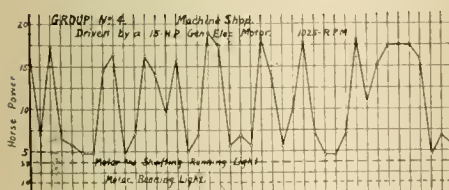 GROUP No 4. Machine Shop.
Driven by a 15-H.P. Gen. Elec. Motor. 1025-R.P.M
20
15
10
5
Horse Power
Motor and Shafting Running Light
Motor Running Light.